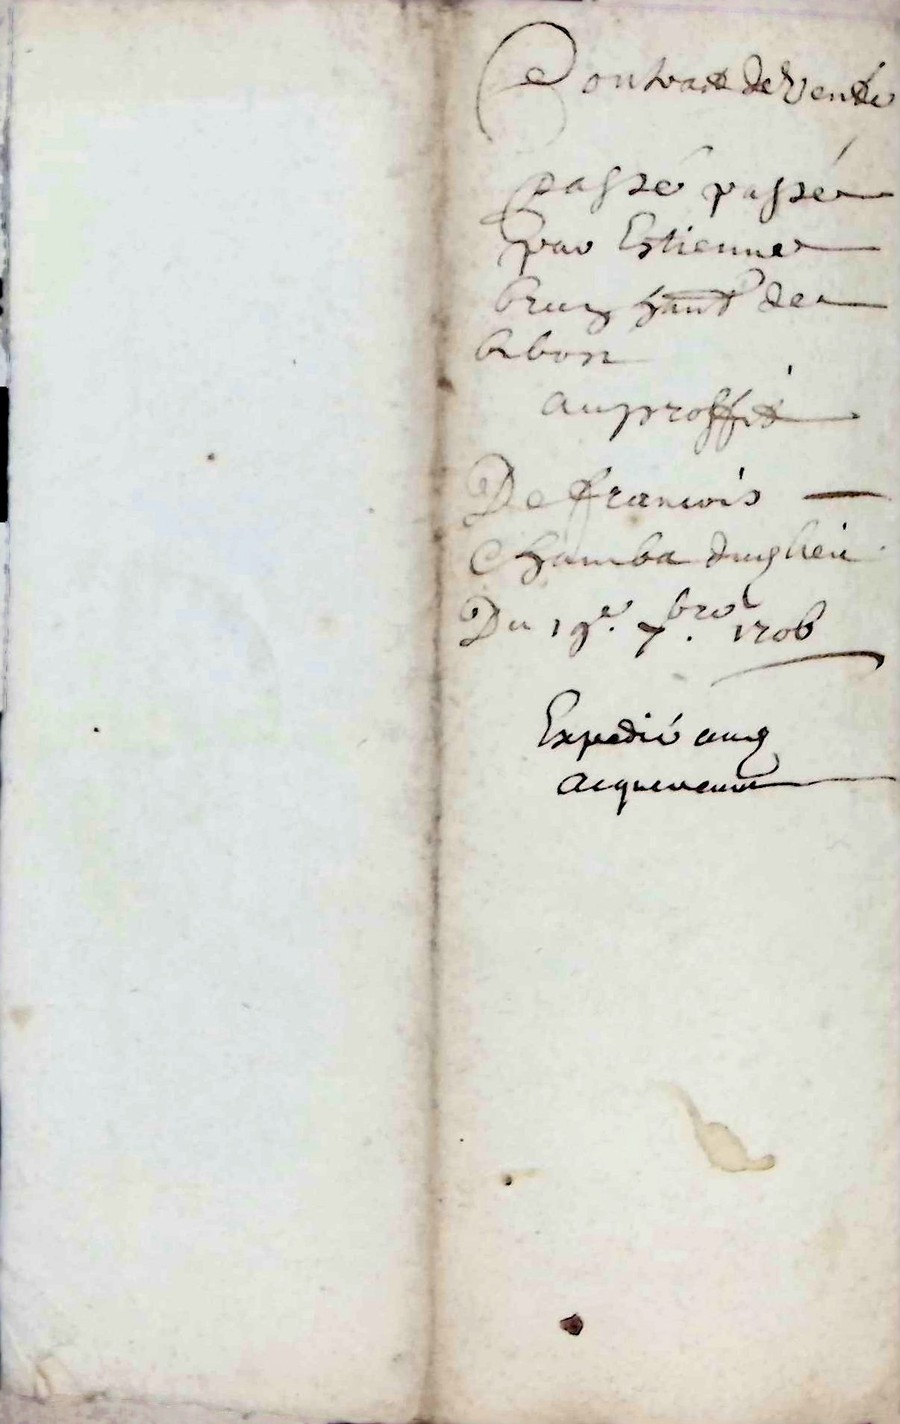 Contract de Vente
passé passé
par Estienne
hant de
au proffit
De francois
Chamba
Du 19e. 7bre. 1706
Expedié aud
acquereur